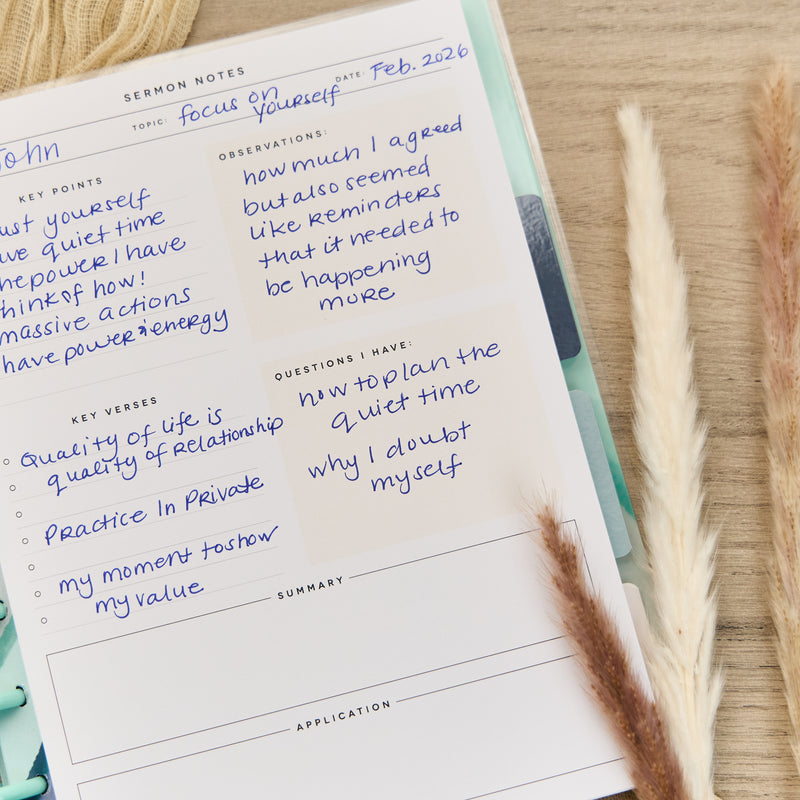 SERMON NOTES
DATE: Feb. 2026
TOPIC: focus on
yourself
John
KEY POINTS
ust yourself
ve quiet time
he power I have
think of how!
massive actions
have power & energy
OBSERVATIONS:
how much I agreed
but also seemed
like reminders
that it needed to
be happening
more
KEY VERSES
Quality of life is
quality of relationship
Practice In Private
my moment to show
my value
QUESTIONS I HAVE:
how to plan the
quiet time
why I doubt
myself
SUMMARY
APPLICATION